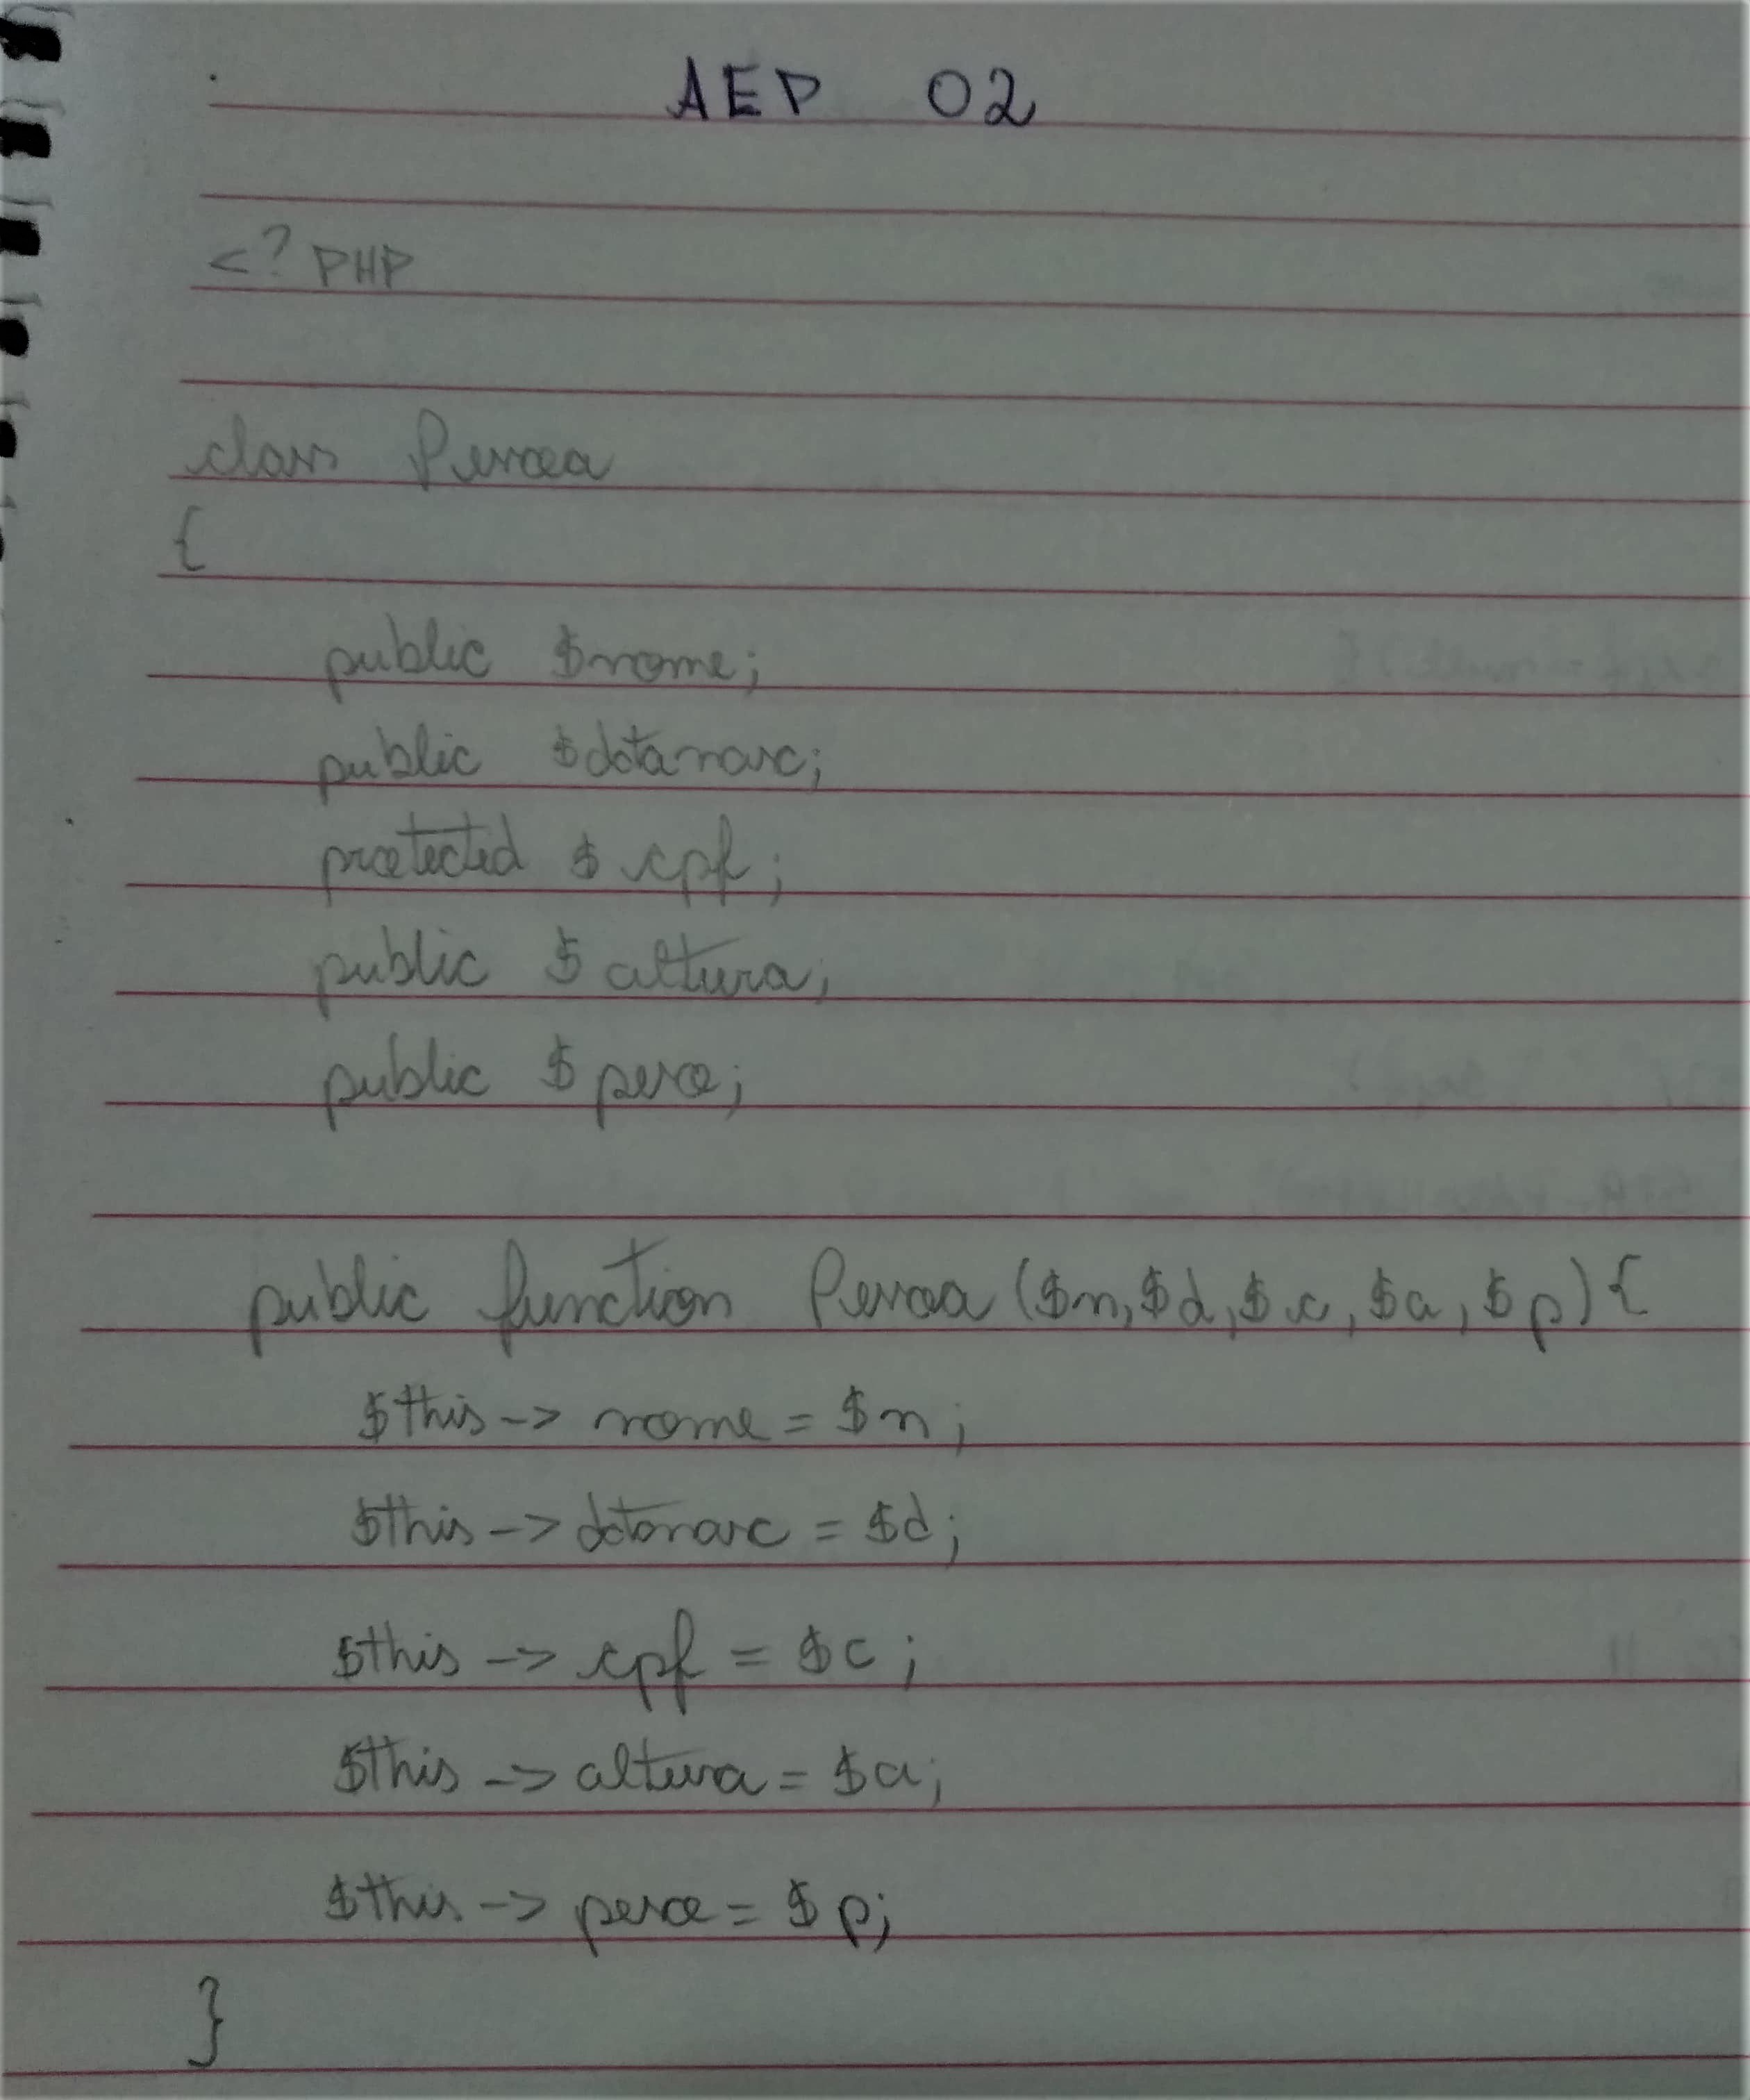 AEP 02
<? PHP
class Pessoa
{
public $nome;
public $datanasc;
protected $cpf;
public $altura;
public $peso;
public function Pessoa ($n, $d, $c, $a, $p) {
$this -> nome = $n;
$this -> datanasc = $d;
$this -> cpf = $c;
$this -> altura = $a;
$this -> peso = $p;
}